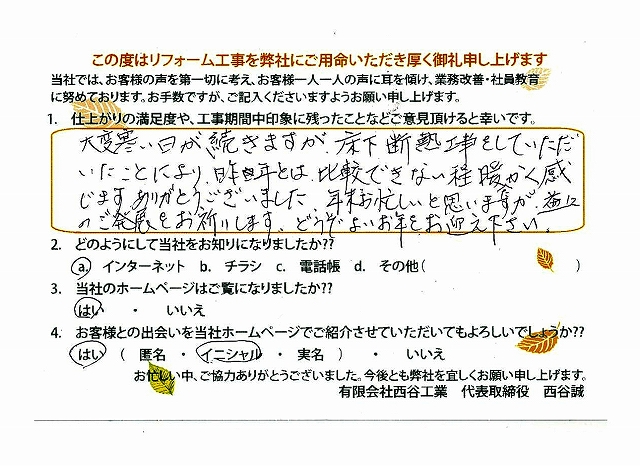 この度はリフォーム工事を弊社にご用命いただき厚く御礼申し上げます
当社では、お客様の声を第一切に考え、お客様一人一人の声に耳を傾け、業務改善・社員教育
に努めております。お手数ですが、ご記入くださいますようお願い申し上げます。
1. 仕上がりの満足度や、工事期間中印象に残ったことなどご意見頂けると幸いです。
大変寒い日が続きますが、床下断熱工事をしていただ
いたことにより、昨年とは比較できない程暖かく感
じます。ありがとうございました。年末お忙しいと思いますが、益々
のご発展をお祈りします。どうぞよいお年をお迎え下さい。
2. どのようにして当社をお知りになりましたか??
a. インターネット b. チラシ c. 電話帳 d. その他( )
3. 当社のホームページはご覧になりましたか??
はい ・ いいえ
4. お客様との出会いを当社ホームページでご紹介させていただいてもよろしいでしょうか??
はい ( 匿名 ・ イニシャル ・ 実名 ) ・ いいえ
お忙しい中、ご協力ありがとうございました。今後とも弊社を宜しくお願い申し上げます。
有限会社西谷工業 代表取締役 西谷誠